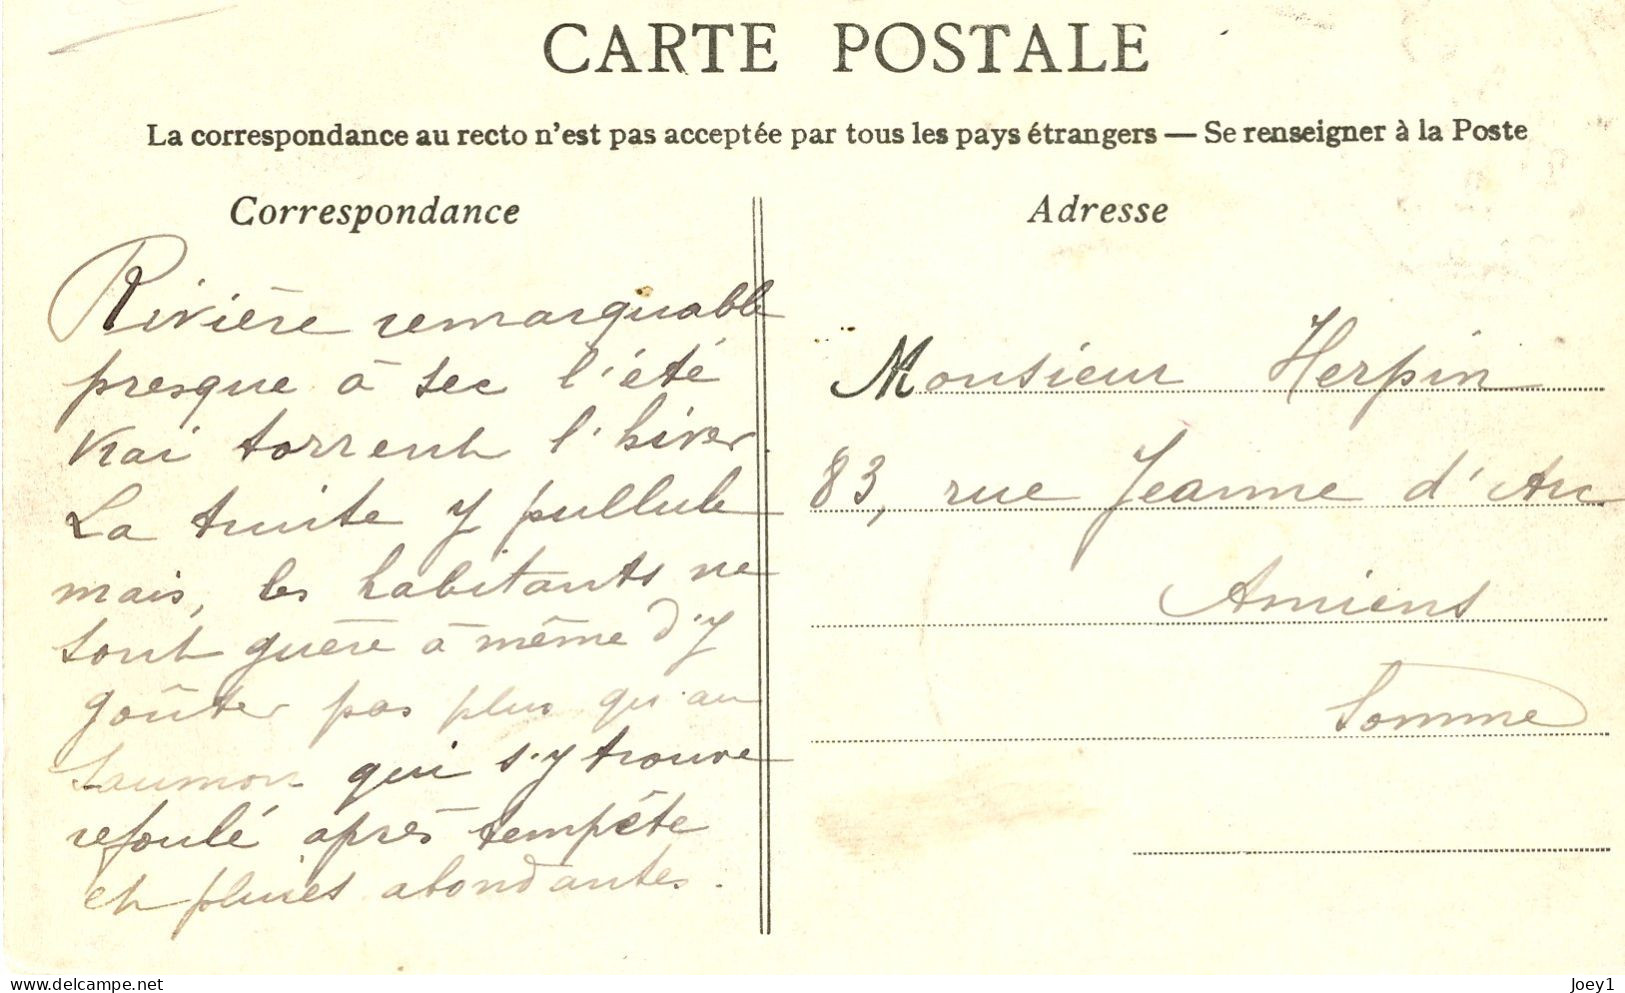 CARTE POSTALE
La correspondance au recto n'est pas acceptée par tous les pays étrangers — Se renseigner à la Poste
Correspondance
Rivière remarquable
presque à sec l'été
vrai torrent l'hiver.
La truite y pullule
mais, les habitants ne
sont guère à même d'y
goûter pas plus qu'au
saumon qui s'y trouve
refoulé après tempête
et pluies abondantes.
Adresse
Monsieur Herpin
83, rue Jeanne d'Arc
Amiens
Somme
Joey1